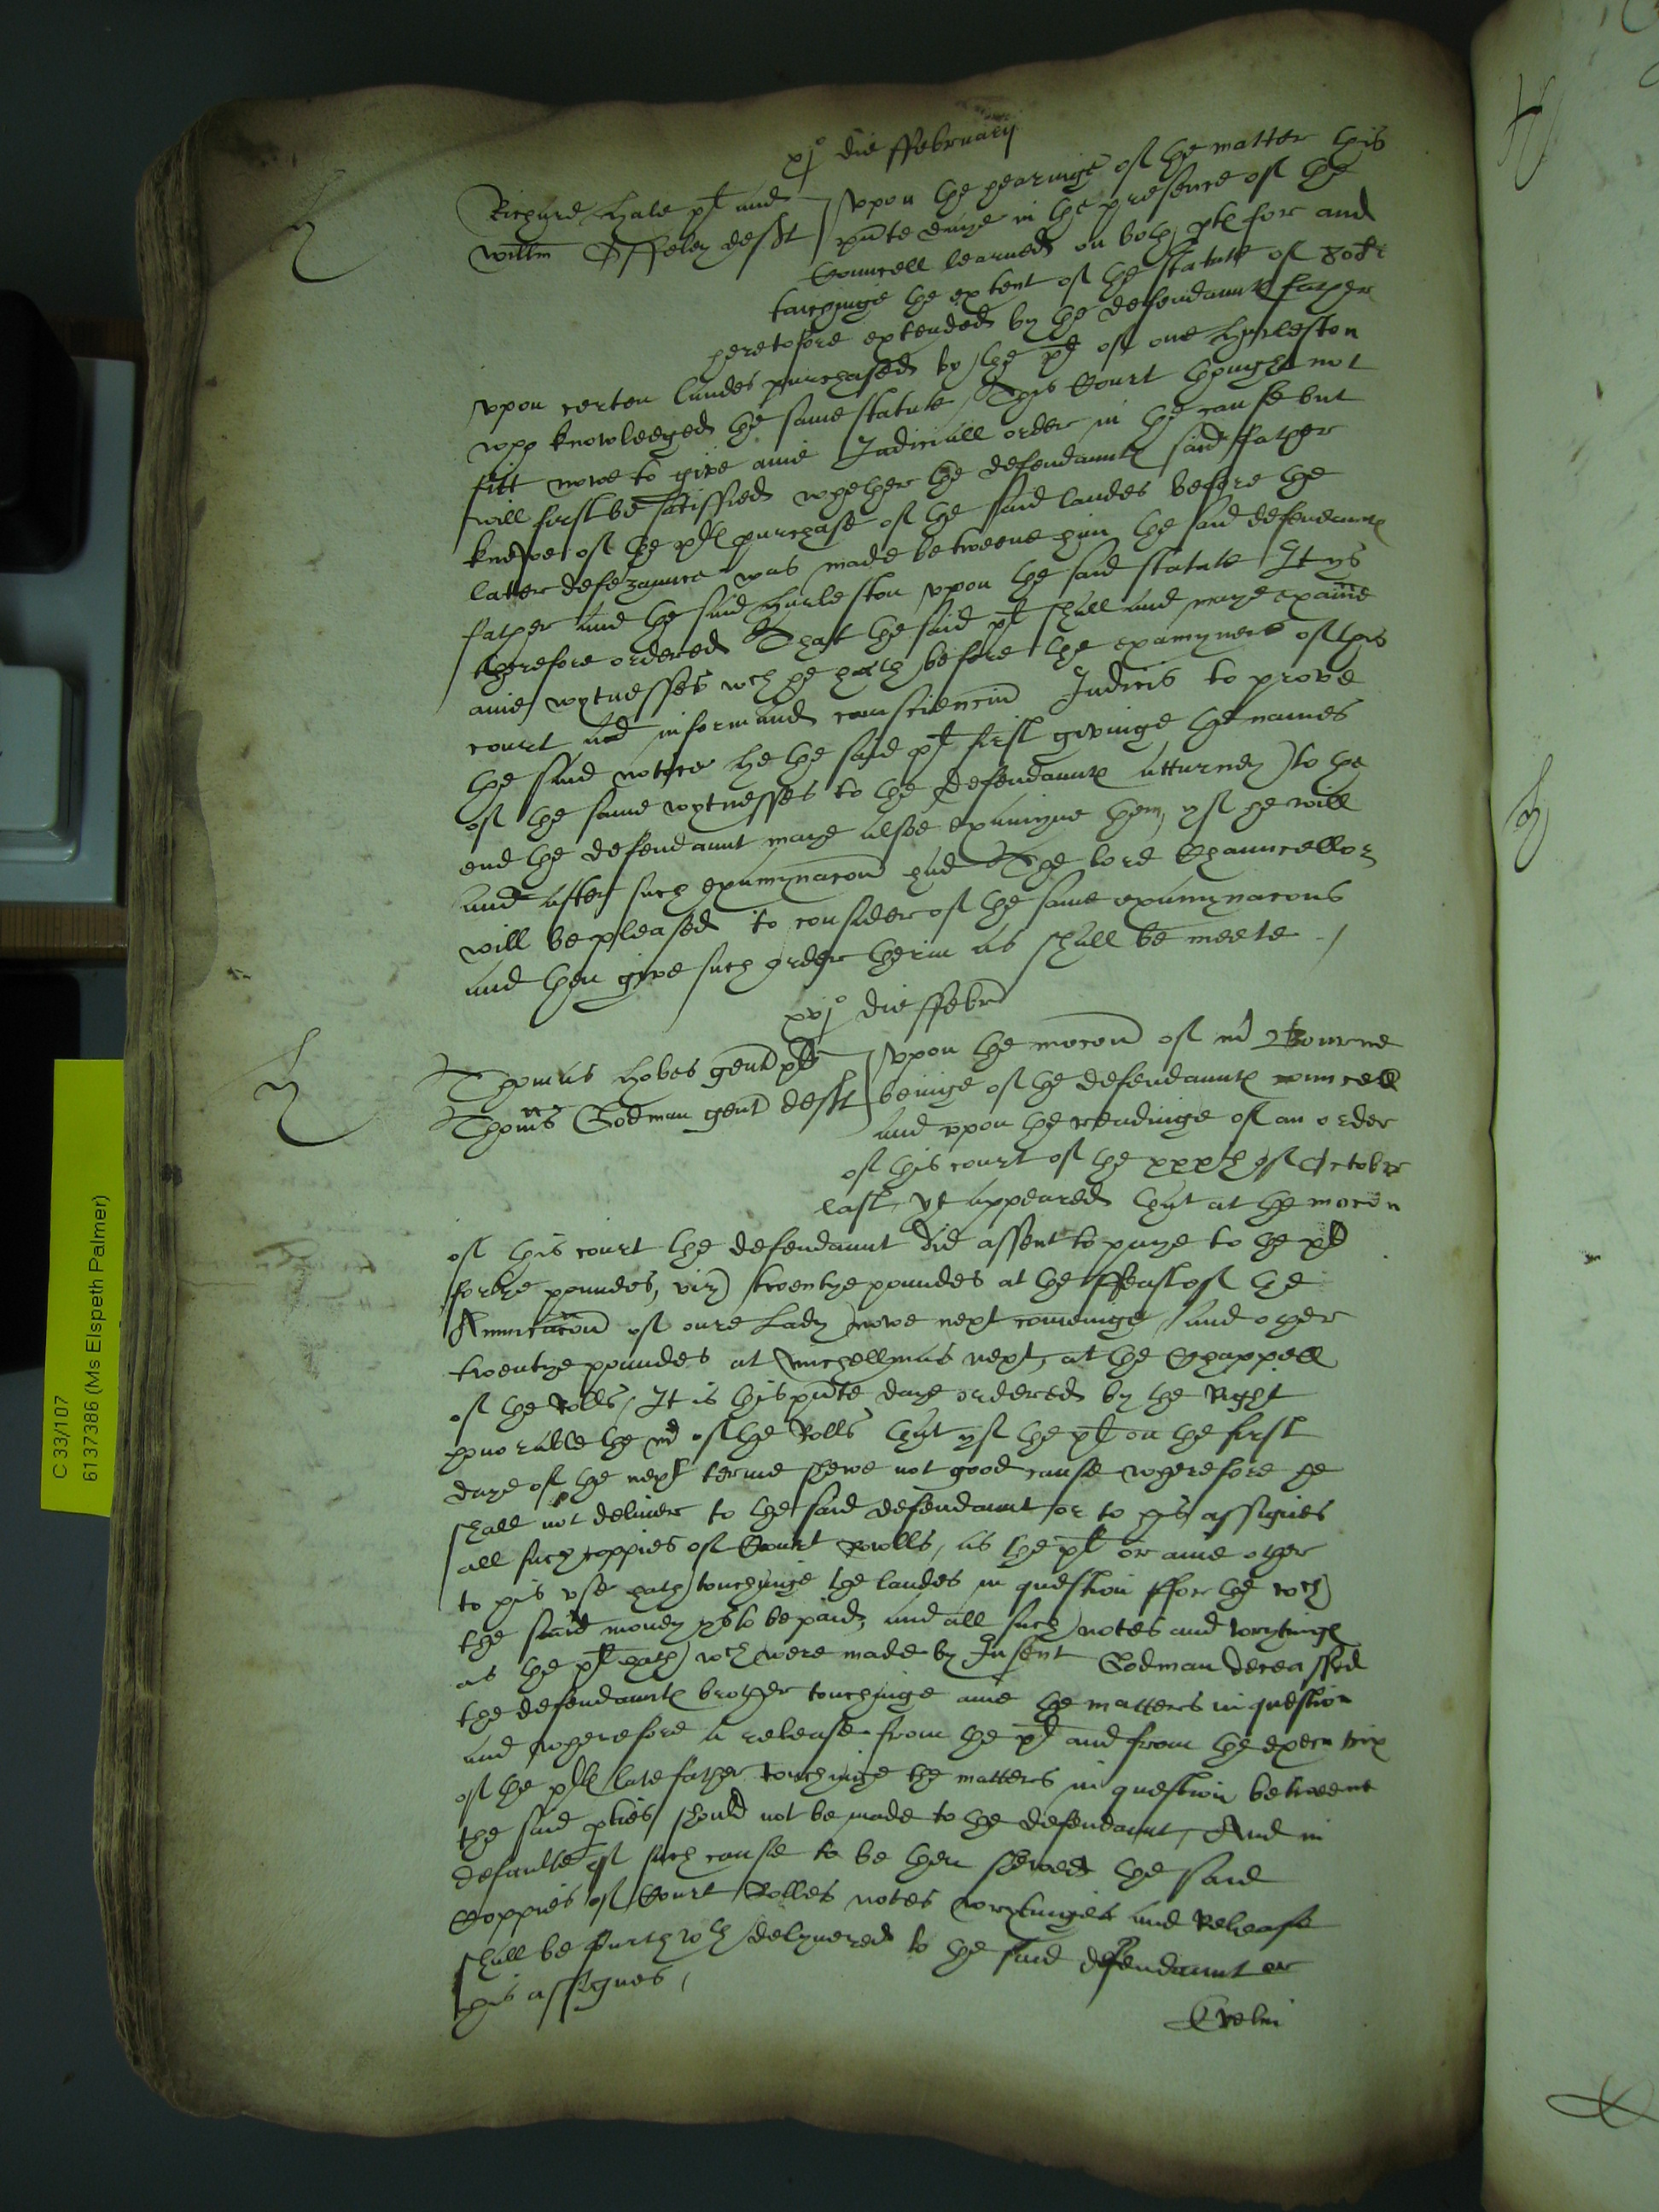 xj° die ffebruarij
Richard Hale plt and
Willm Offeley defft
Vpon the hearinge of the matter this
pnte daye in the presence of the
Councell learned on both ptes for and
towchinge the extent of the statute of 80li
heretofore extended by the defendauntes father
vpon certen landes purchased by the plt of one Hurleston
who knowledged the same statute, This Court thought not
fitt nowe to give anie Judiciall order in the cause but
will first be satisffied whether the defendauntes said father
knewe of the pltes purchase of the said landes before the
later defezaunce was made betweene him the said defendauntes
father and the said Hurleston vpon the said statute It ys
therefore ordered That the said plt shall and maye examine
anie wytnesses wch he hath before the examyners of this
court ad informand conscienciam Judicis to prove
the said notice he the said plt first gevinge the names
of the same wytnesses to the defendauntes atturney to the
end the defendaunt maye alsoe examyne them, yf he will
and after such examynacon had The lord Chauncellor
will be pleased to consider of the same examynacons
and then give such order therin as shall be meete /
xvj° die ffebr
Thomas Hobes gent plt
Thoms Godman gent defft
Vpon the mocon of mr Bourne
beinge of the defendauntes councell
and vpon the readinge of an order
of this court of the xxxth of October
last, yt appeared that at the mocon
of this court the defendaunt did assent to paye to the plt
fortye poundes, viz twentye poundes at the ffeast of the
Annunciacon of oure Lady nowe next comeinge, and other
twentye poundes at Michellmas next, at the Chappell
of the Rolls, It is this pnte daye ordered by the Right
honorable the mr of the Rolls that yf the plt on the first
daye of the next terme shewe not good cause wherefore he
shall not deliuer to the said defendaunt or to his assignes
all such coppies of Court Rowlls, as the plt or anie other
to his vse hath touchinge the landes in question ffor the wch
the said money ys to be paid, and all such notes and wrytinges
as the plt hath wch were made by Godman deceassed
the defendauntes brother touchinge anie the matters in question
and wherefore a release from the plt and from the executrix
of the pltes late father touchinge the matters in question betweene
the said pties should not be made to the defendaunt, And in
defaulte of such cause to be then shewed the said
Coppies of Court Rolles notes wrytinges and Release
shall be furthwth delyuered to the said defendaunt or
his assignes,
C 33/107
61373386 (Ms Elspeth Palmer)